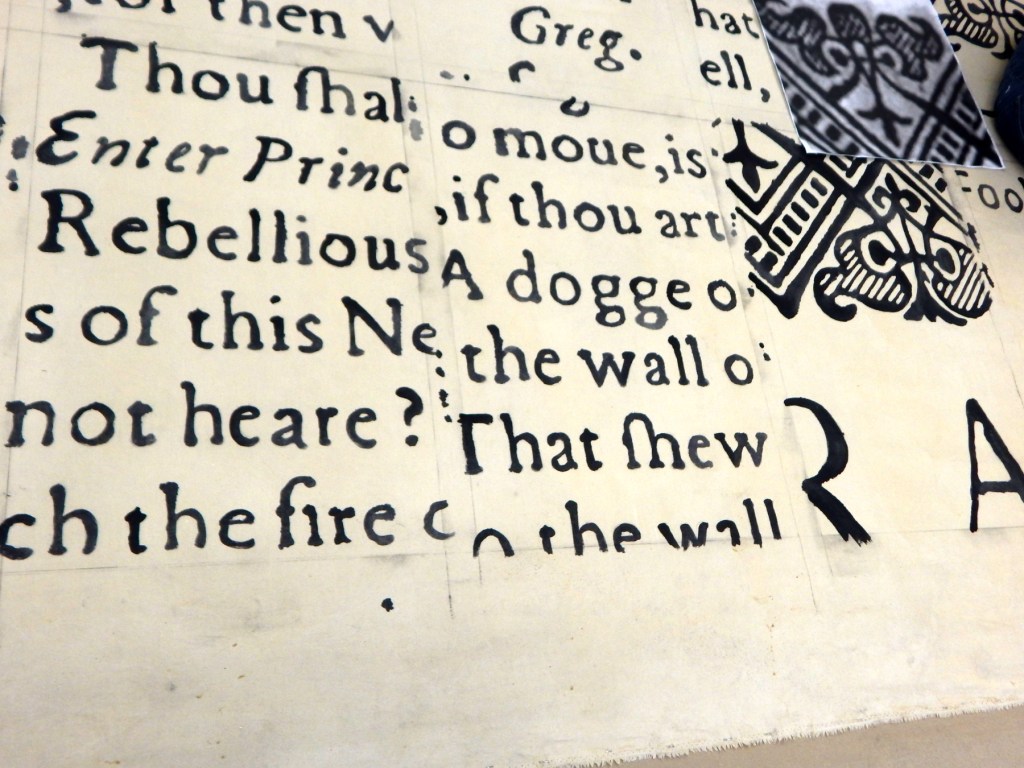 then v
Thou ſhal
Enter Princ
Rebellious
s of this Ne
not heare?
ch the fire c
Greg.
o moue, is
, if thou art
A dogge o
the wall o
That ſhew
the wall
hat
ell,
Foo
R A